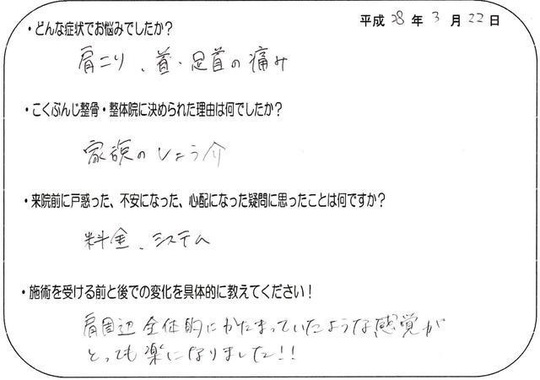 平成 28 年 3 月 22 日
・どんな症状でお悩みでしたか?
肩こり、首・足首の痛み
・こくぶんじ整骨・整体院に決められた理由は何でしたか?
家族のしょう介
・来院前に戸惑った、不安になった、心配になった疑問に思ったことは何ですか?
料金、システム
・施術を受ける前と後での変化を具体的に教えてください!
肩周辺全体的にかたまっていたような感覚が
とっても楽になりました!!